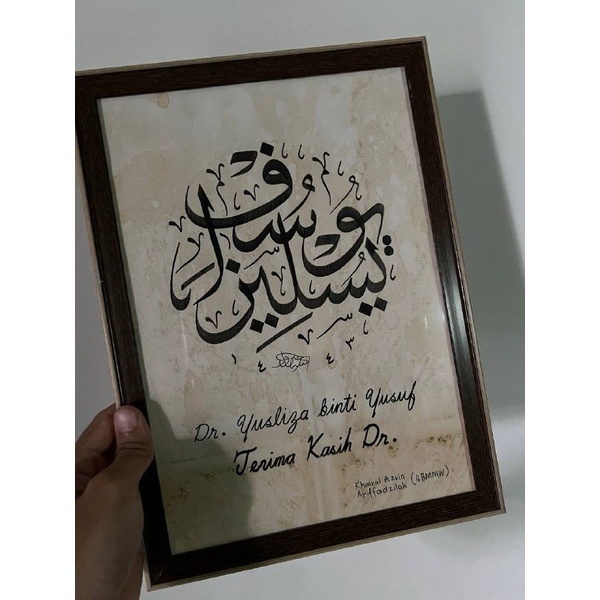 يوسف
يسليزا
١٤ ٤٣
Dr. Yusliza binti Yusuf
Terima Kasih Dr.
Khairul Azrin
Ariffadzilah (4BMMW)